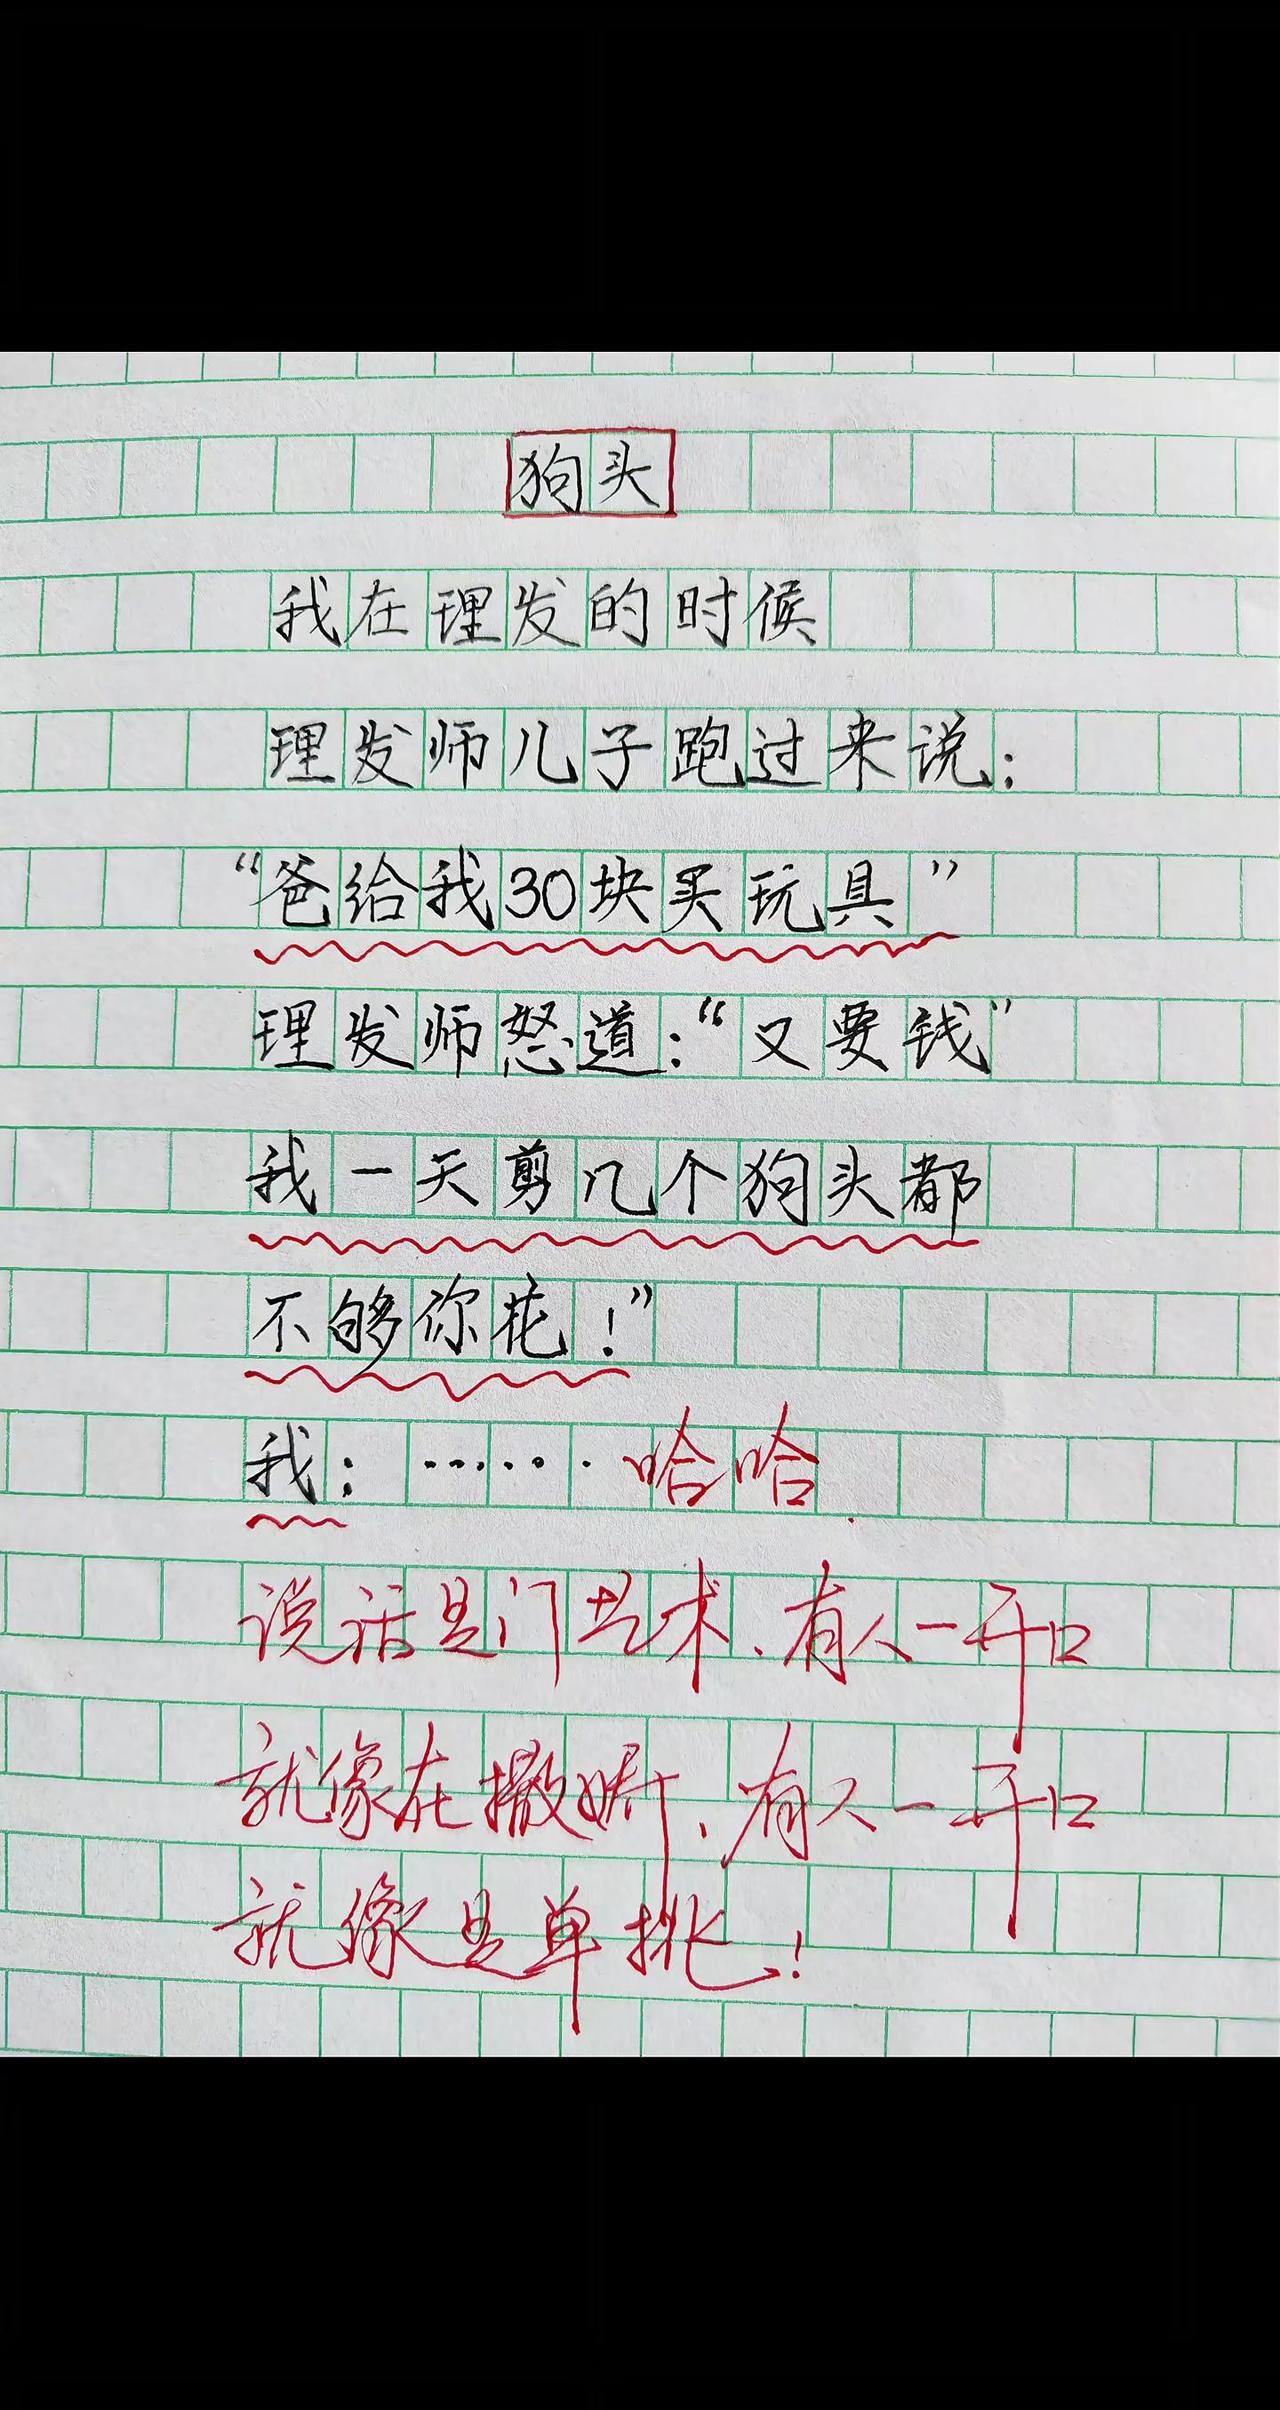 狗头
我在理发的时候
理发师儿子跑过来说：
“爸给我30块买玩具”
理发师怒道：“又要钱”
我一天剪几个狗头都
不够你花！”
我：……哈哈
说话是门艺术、有人一开口
就像在撒娇、有人一开口
就像是单挑！